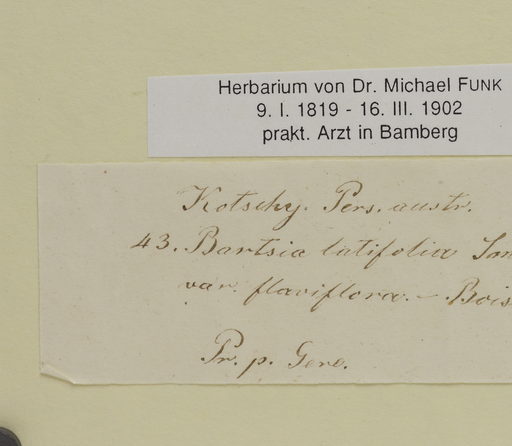 Herbarium von Dr. Michael FUNK
9. I. 1819 - 16. III. 1902
prakt. Arzt in Bamberg
Kotschy. Pers. austr.
43. Bartsia latifolia Sm
var. flaviflora. – Bois
Pr. p. Gere.